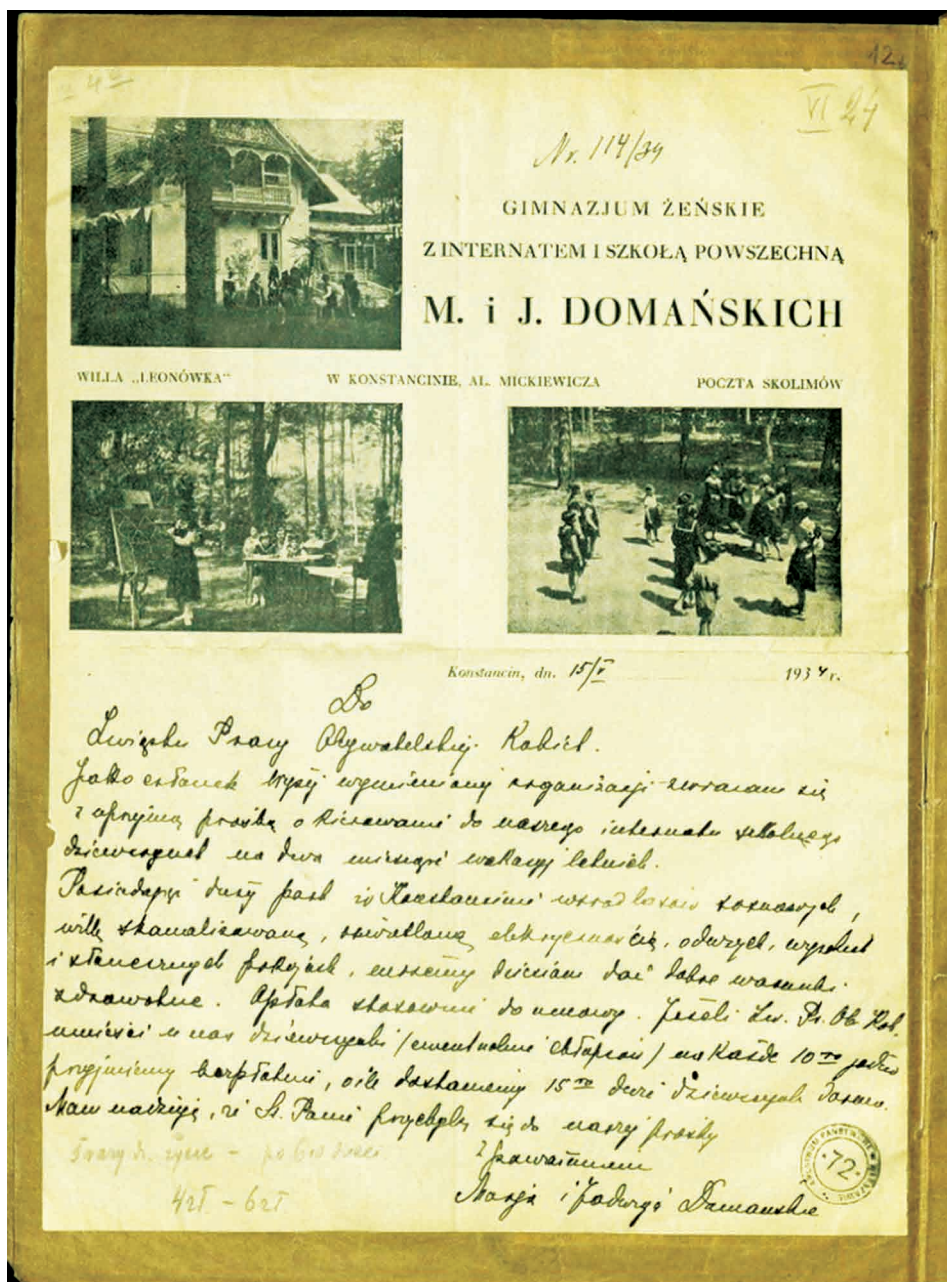 12
VI 24
Nr. 114/34
GIMNAZJUM ŻEŃSKIE
Z INTERNATEM I SZKOŁĄ POWSZECHNĄ
M. i J. DOMAŃSKICH
WILLA „LEONÓWKA“ W KONSTANCINIE, AL. MICKIEWICZA POCZTA SKOLIMÓW
Konstancin, dn. 15/V 1934 r.
Do
Związku Pracy Obywatelskiej Kobiet.
Jako członek wyżej wymienionej organizacji zwracam się
z uprzejmą prośbą o kierowanie do naszego internatu szkolnego
dziewczynek na dwa miesiące wakacyj letnich.
Posiadając duży park w Konstancinie wsród lasów sosnowych,
willę skanalizowaną, oświetloną elektrycznością, o dużych,
i słonecznych pokojach, możemy dzieciom dać dobre warunki
zdrowotne. Opłata stosownie do umowy. Jeżeli Zw. Pr. Ob. Kob.
umieści u nas dziewczynki /ewentualnie chłopców/ na każde 10ro jedno
przyjmiemy bezpłatnie, o ile dostaniemy 15ro dzieci dziewczynek razem.
Mam nadzieję, że Sz. Panie przychylą się do naszej prośby
Z poważaniem
Marja i Jadwiga Domańskie
4zł – 6zł
ARCHIWUM PAŃSTWOWE W WARSZAWIE
72